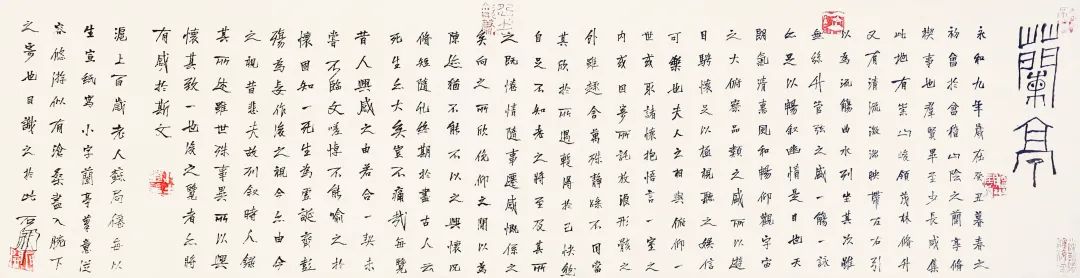 蘭亭
永和九年歲在癸丑暮春之
初會於會稽山陰之蘭亭脩
禊事也羣賢畢至少長咸集
此地有崇山峻領茂林脩竹
又有清流激湍映帶左右引
以為流觴曲水列坐其次雖
無絲竹管弦之盛一觴一詠
亦足以暢叙幽情是日也天
朗氣清惠風和暢仰觀宇宙
之大俯察品類之盛所以遊
目騁懷足以極視聽之娛信
可樂也夫人之相與俯仰一
世或取諸懷抱悟言一室之
內或因寄所託放浪形骸之
外雖趣舍萬殊靜躁不同當
其欣於所遇暫得於己快然
自足不知老之將至及其所
之既惓情隨事遷感慨係之
矣向之所欣俛仰之閒以為
陳迹猶不能不以之興懷況
脩短隨化終期於盡古人云
死生亦大矣豈不痛哉每覽
昔人興感之由若合一契未
嘗不臨文嗟悼不能喻之於
懷固知一死生為虛誕齊彭
殤為妄作後之視今亦由今
之視昔悲夫故列叙時人錄
其所述雖世殊事異所以興
懷其致一也後之覽者亦將
有感於斯文
滬上百歲老人蘇局僊每以
生宣紙寫小字蘭亭筆意從
容悠游似有滄桑盡入腕下
之也識之於此 石開